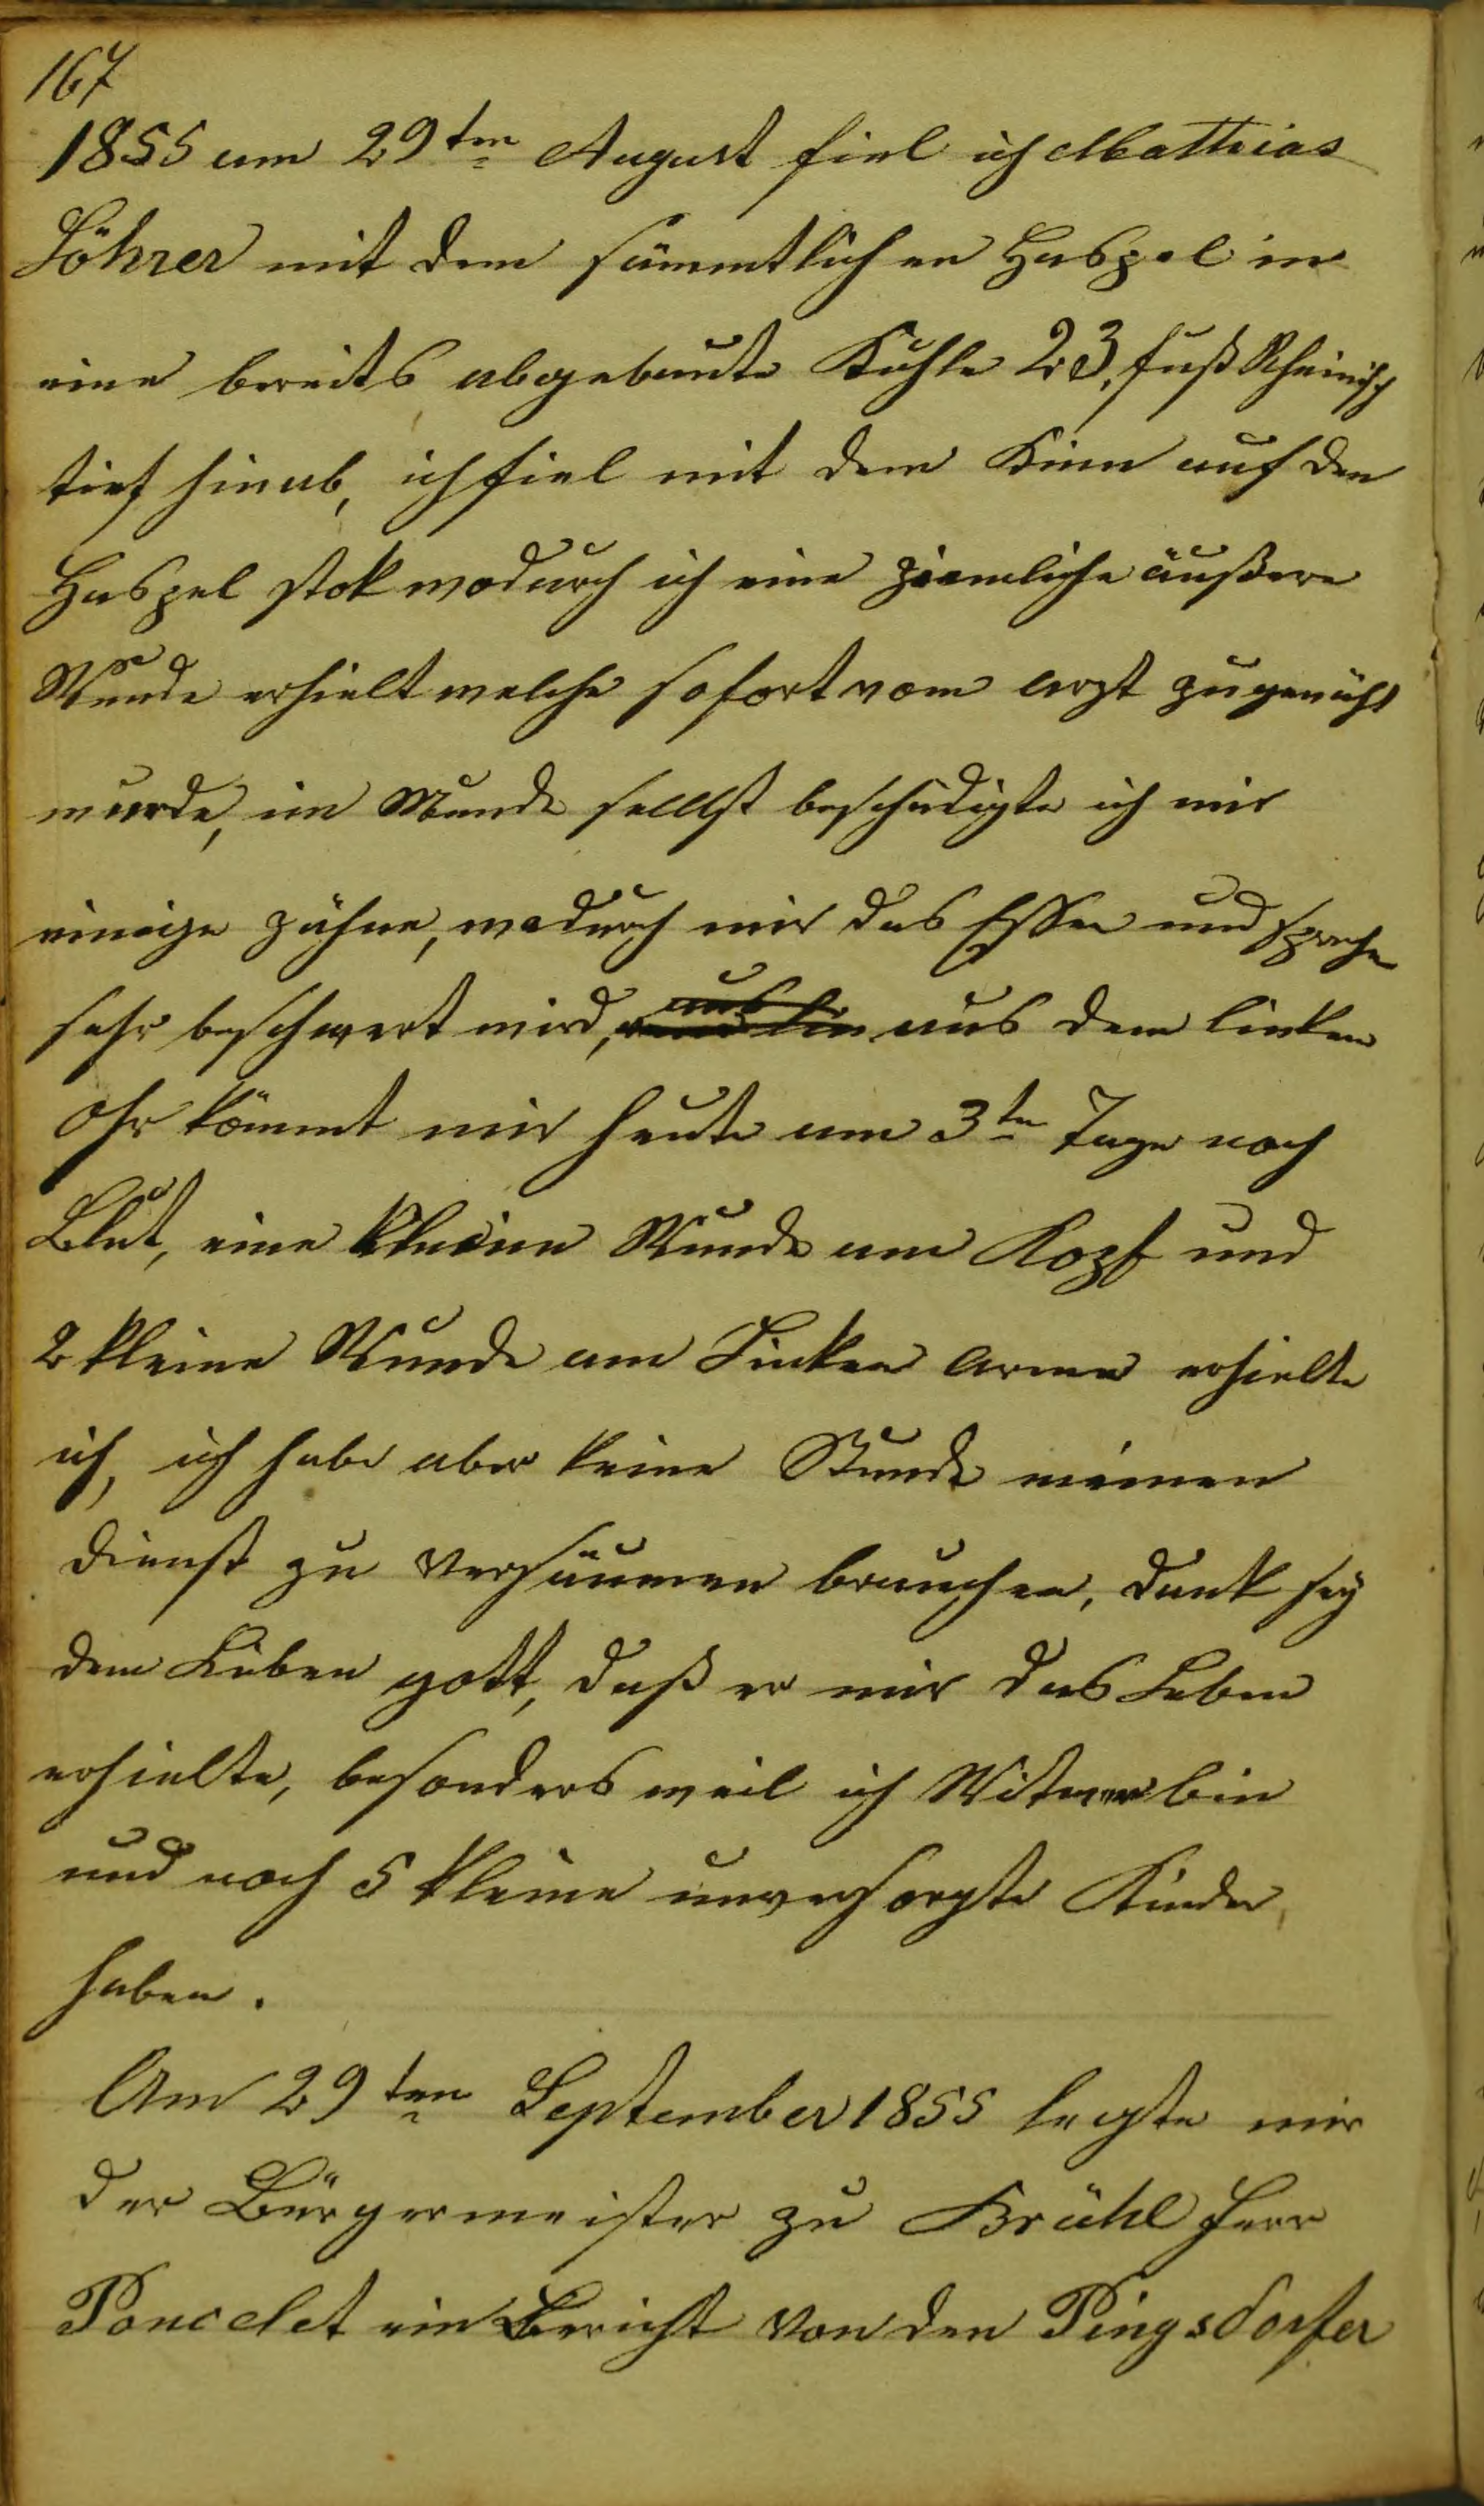 167
1855 am 29ten August fiel ich Matthias
Löhrer mit dem sämmtlichen Haspel in
eine bereits abgebaute Kuhle 23, fuß Rheinisch
tief hinab, ich fiel mit dem Kinn auf den
Haspel stok wodurch ich eine ziemliche äußere
Wunde erhielt welche sofort vom arzt zugenäht
wurde, im Munde selbst beschädigte ich mir
einige zähne, wodurch mir das Essen und sprechen
sehr beschwert wird, aus dem linken
Ohr kömmt mir heute am 3ten Tage noch
Blut, eine kleine Wunde am Kopf und
2 kleine Wunde am Linken arme erhielte
ich, ich habe aber keine Stunde meinen
dienst zu versäumen brauchen, dank sey
dem Lieben gott, daß er mir das Leben
erhielte, besonders weil ich Witwer bin
und noch 5 kleine unversorgte Kinder,
haben.
Am 29ten September 1855 legte mir
der Bürgermeister zu Brühl Herr
Poncelet ein Bericht von den Pingsdorfer